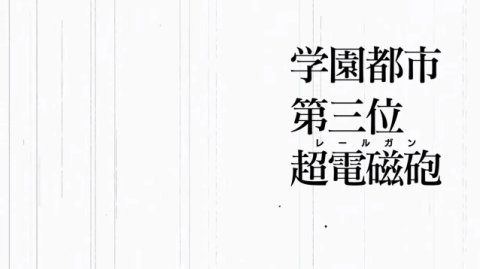 学園都市
第三位
レールガン
超電磁砲